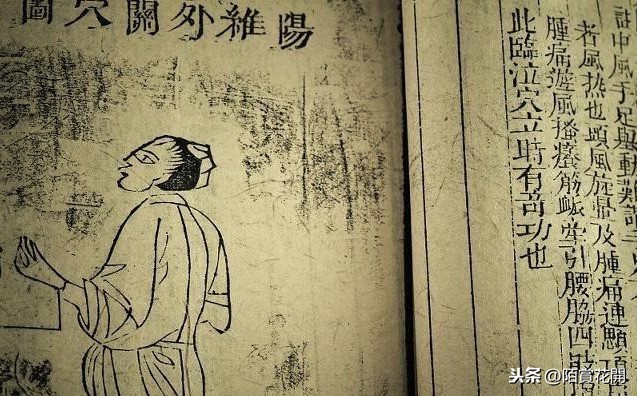 陽維外關穴圖
註中風手足舉動難
者風热也頭風旋暈及腫痛連
腫痛遊風搔癢筋牽引腰脇四肢
此臨泣穴立時有奇功也
头条 @陌賞花開